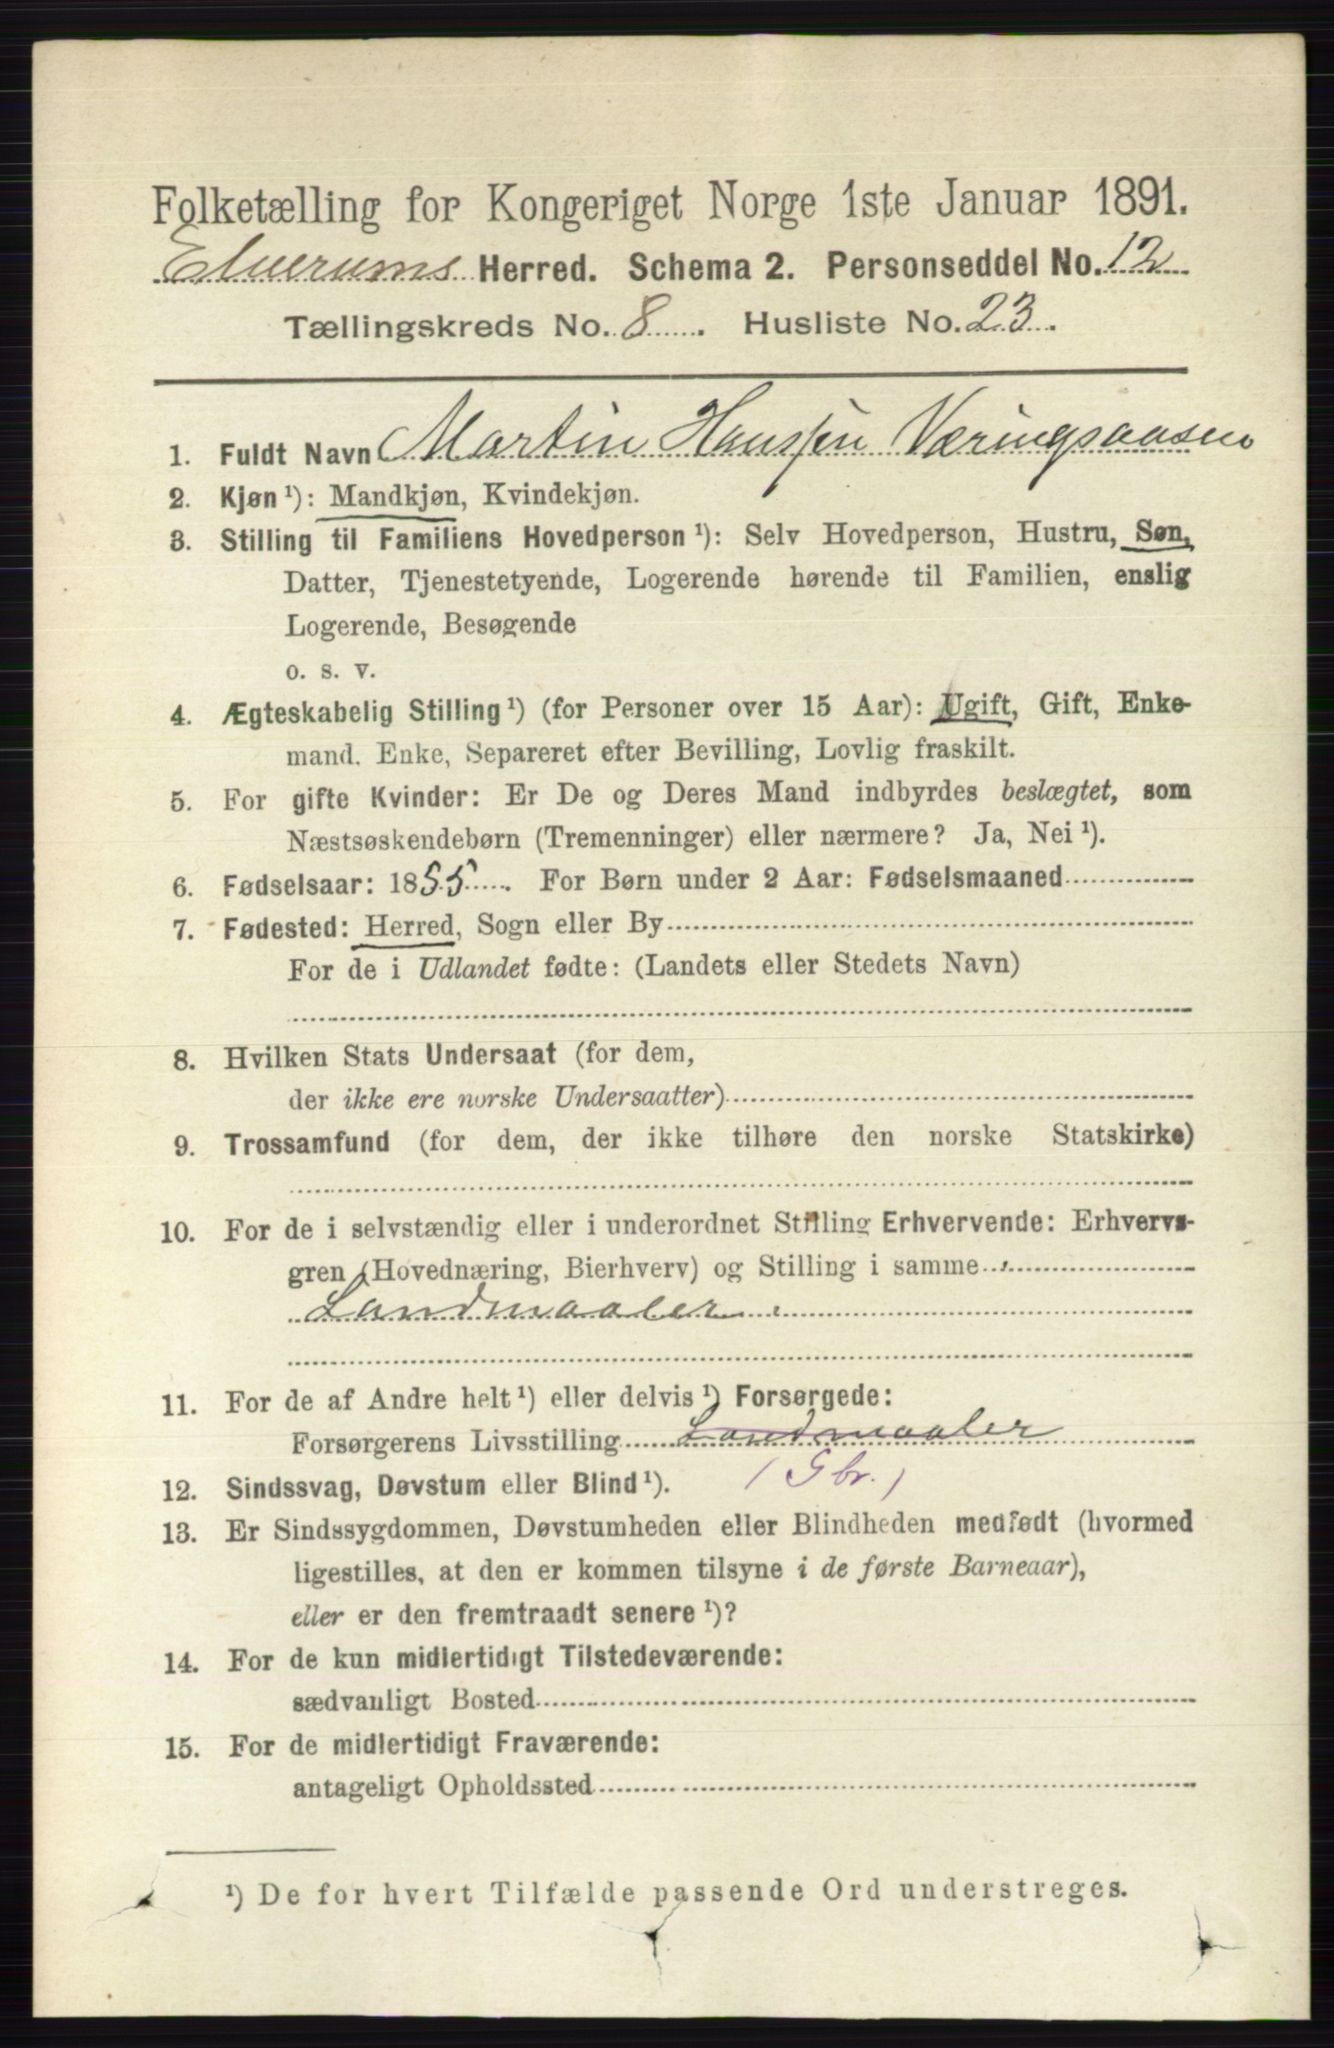 Folketælling for Kongeriget Norge 1ste Januar 1891.
Elverums Herred. Schema 2. Personseddel No. 12
Tællingskreds No. 8. Husliste No. 23.
1. Fuldt Navn Martin Hansen Væringsaasen
2. Kjøn ¹): Mandkjøn, Kvindekjøn.
3. Stilling til Familiens Hovedperson ¹): Selv Hovedperson, Hustru, Søn,
Datter, Tjenestetyende, Logerende hørende til Familien, enslig
Logerende, Besøgende
o. s. v.
4. Ægteskabelig Stilling ¹) (for Personer over 15 Aar): Ugift, Gift, Enke-
mand, Enke, Separeret efter Bevilling, Lovlig fraskilt.
5. For gifte Kvinder: Er De og Deres Mand indbyrdes beslægtet, som
Næstsøskendebørn (Tremenninger) eller nærmere? Ja, Nei ¹).
6. Fødselsaar: 1855. For Børn under 2 Aar: Fødselsmaaned
7. Fødested: Herred, Sogn eller By
For de i Udlandet fødte: (Landets eller Stedets Navn)
8. Hvilken Stats Undersaat (for dem,
der ikke ere norske Undersaatter)
9. Trossamfund (for dem, der ikke tilhøre den norske Statskirke)
10. For de i selvstændig eller i underordnet Stilling Erhvervende: Erhvervs-
gren (Hovednæring, Bierhverv) og Stilling i samme
Landmaaler
11. For de af Andre helt ¹) eller delvis ¹) Forsørgede:
Forsørgerens Livsstilling Landmaaler
(Gbr.)
12. Sindssvag, Døvstum eller Blind ¹).
13. Er Sindssygdommen, Døvstumheden eller Blindheden medfødt (hvormed
ligestilles, at den er kommen tilsyne i de første Barneaar),
eller er den fremtraadt senere ¹)?
14. For de kun midlertidigt Tilstedeværende:
sædvanligt Bosted
15. For de midlertidigt Fraværende:
antageligt Opholdssted
¹) De for hvert Tilfælde passende Ord understreges.